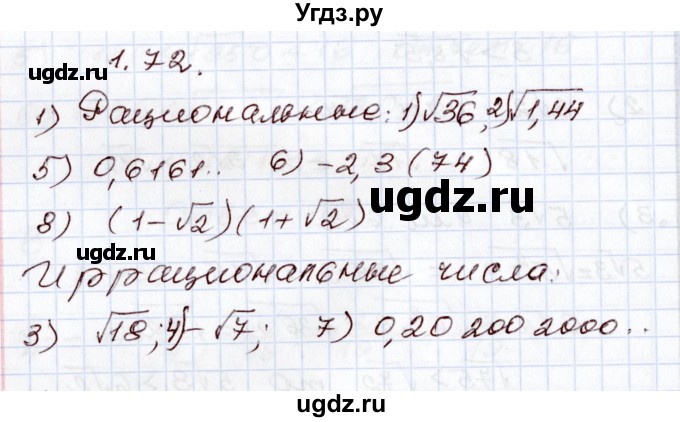 Угдз.ру
1.72.
1) Рациональные: 1)√36, 2)√1,44
5) 0,6161.. 6) -2,3(74)
8) (1-√2)(1+√2)
Иррациональные числа:
3) √18; 4)-√7; 7) 0,20 200 2000..
ugdz.ru
ugdz.ru
ugdz.ru
ugdz.ru
ugdz.ru
ugdz.ru
ugdz.ru